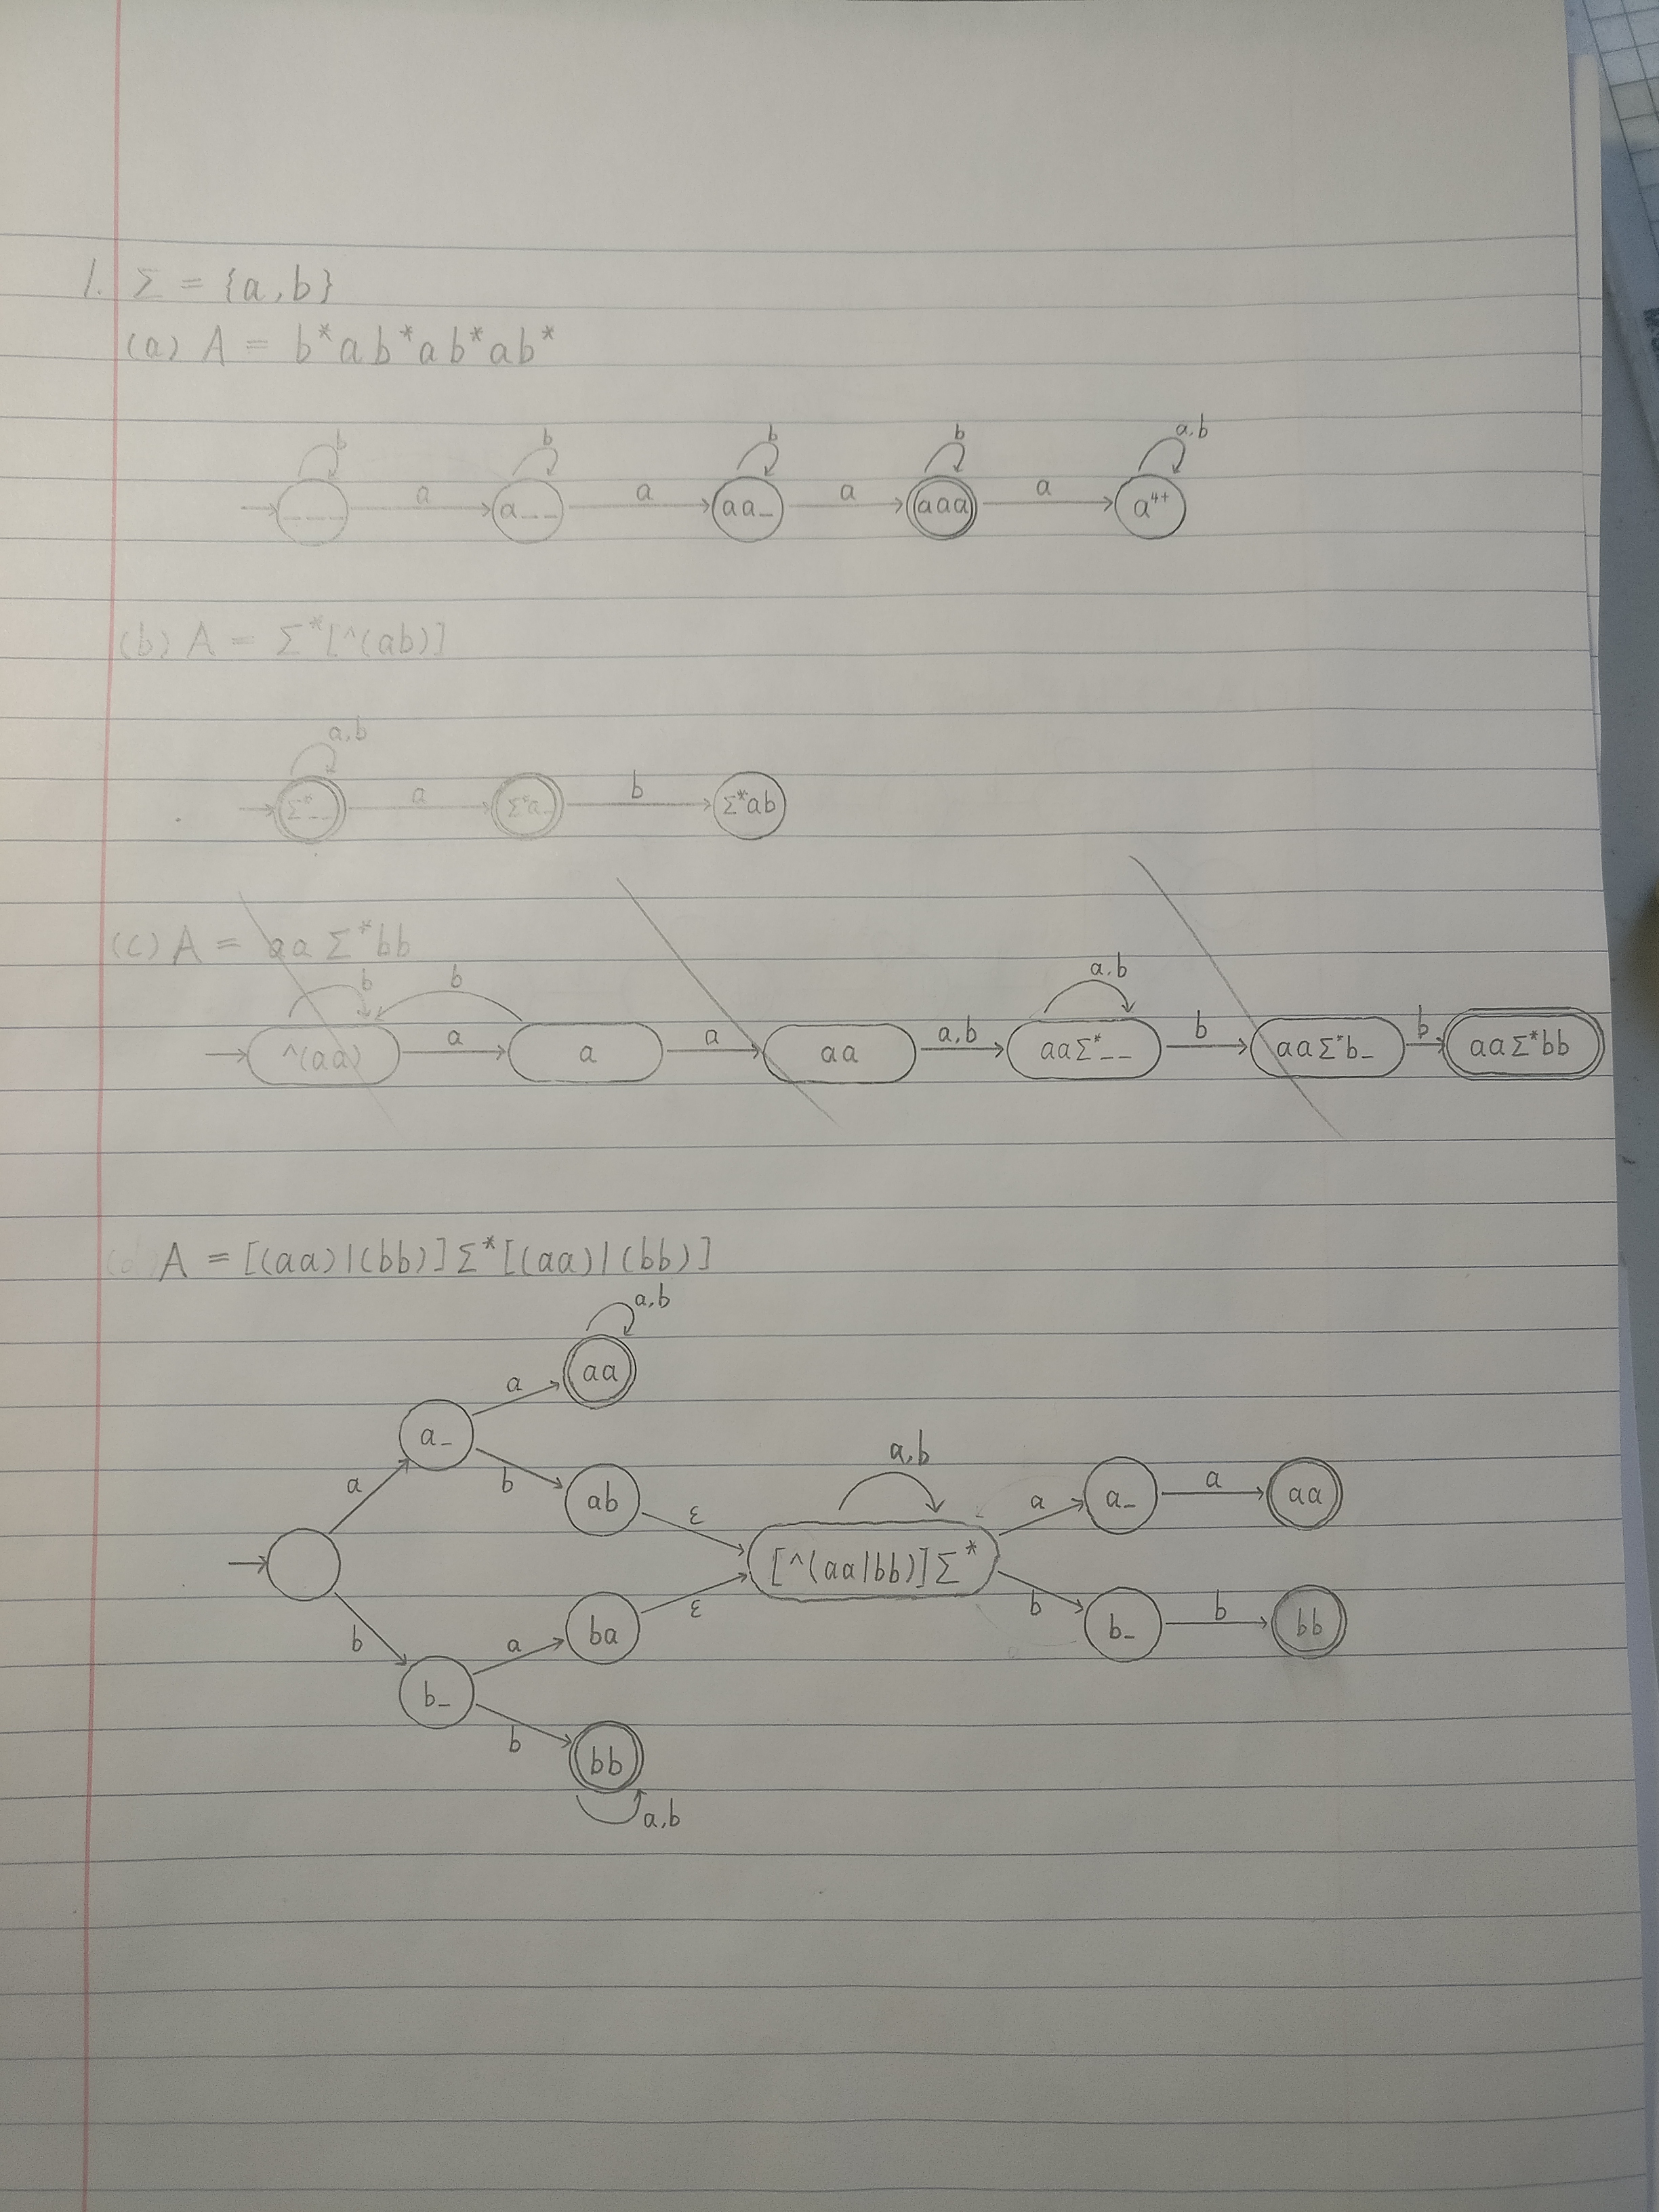 1. Σ = {a,b}
(a) A = b*ab*ab*ab*
b b b b a,b
___ a a__ a aa_ a aaa a a⁴⁺
(b) A = Σ*[^(ab)]
a,b
Σ*__ a Σ*a_ b Σ*ab
(c) A = aaΣ*bb
b b a,b
^(aa) a a a aa a,b aaΣ*__ b aaΣ*b_ b aaΣ*bb
(d) A = [(aa)|(bb)]Σ*[(aa)|(bb)]
a,b
a aa
a_
a b ab ε a,b a a_ a aa
[^(aa|bb)]Σ*
b a ba ε b b_ b bb
b_
b bb
a,b